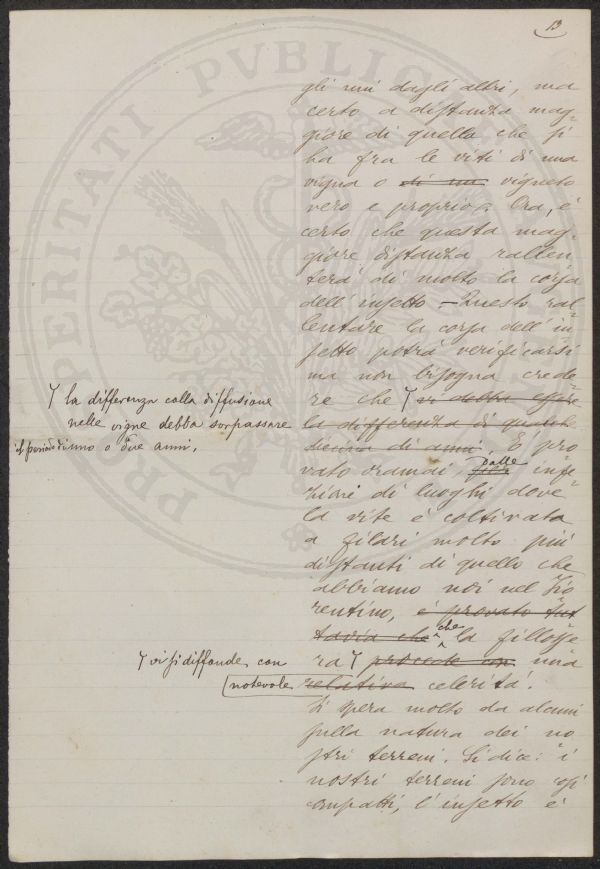 13
gli uni dagli altri, ma
certo a distanza mag-
giore di quella che si
ha fra le viti di una
vigna o di un vigneto
vero e proprio. Ora, è
certo che questa mag-
giore distanza rallen
terà di molto la corsa
dell'insetto — Questo ral-
lentare la corsa dell'in-
setto potrà verificarsi
ma non bisogna crede-
re che vi debba essere
la differenza di qualch
diecina di anni. È pro
vato oramai, dalle infe-
zioni di luoghi dove
la vite è coltivata
a filari molto più
distanti di quello che
abbiamo noi nel Fio
rentino, è provato tut
tavia che che la fillosse
ra procede con una
relativa celerità.
Si spera molto da alcuni
sulla natura dei no
stri terreni. Si dice: "i
nostri terreni sono così
compatti, l'insetto è
la differenza colla diffusione
nelle vigne debba sorpassare
il periodo d'uno o due anni.
vi si diffonde con
notevole
PROSPERITATI PVBLICAE